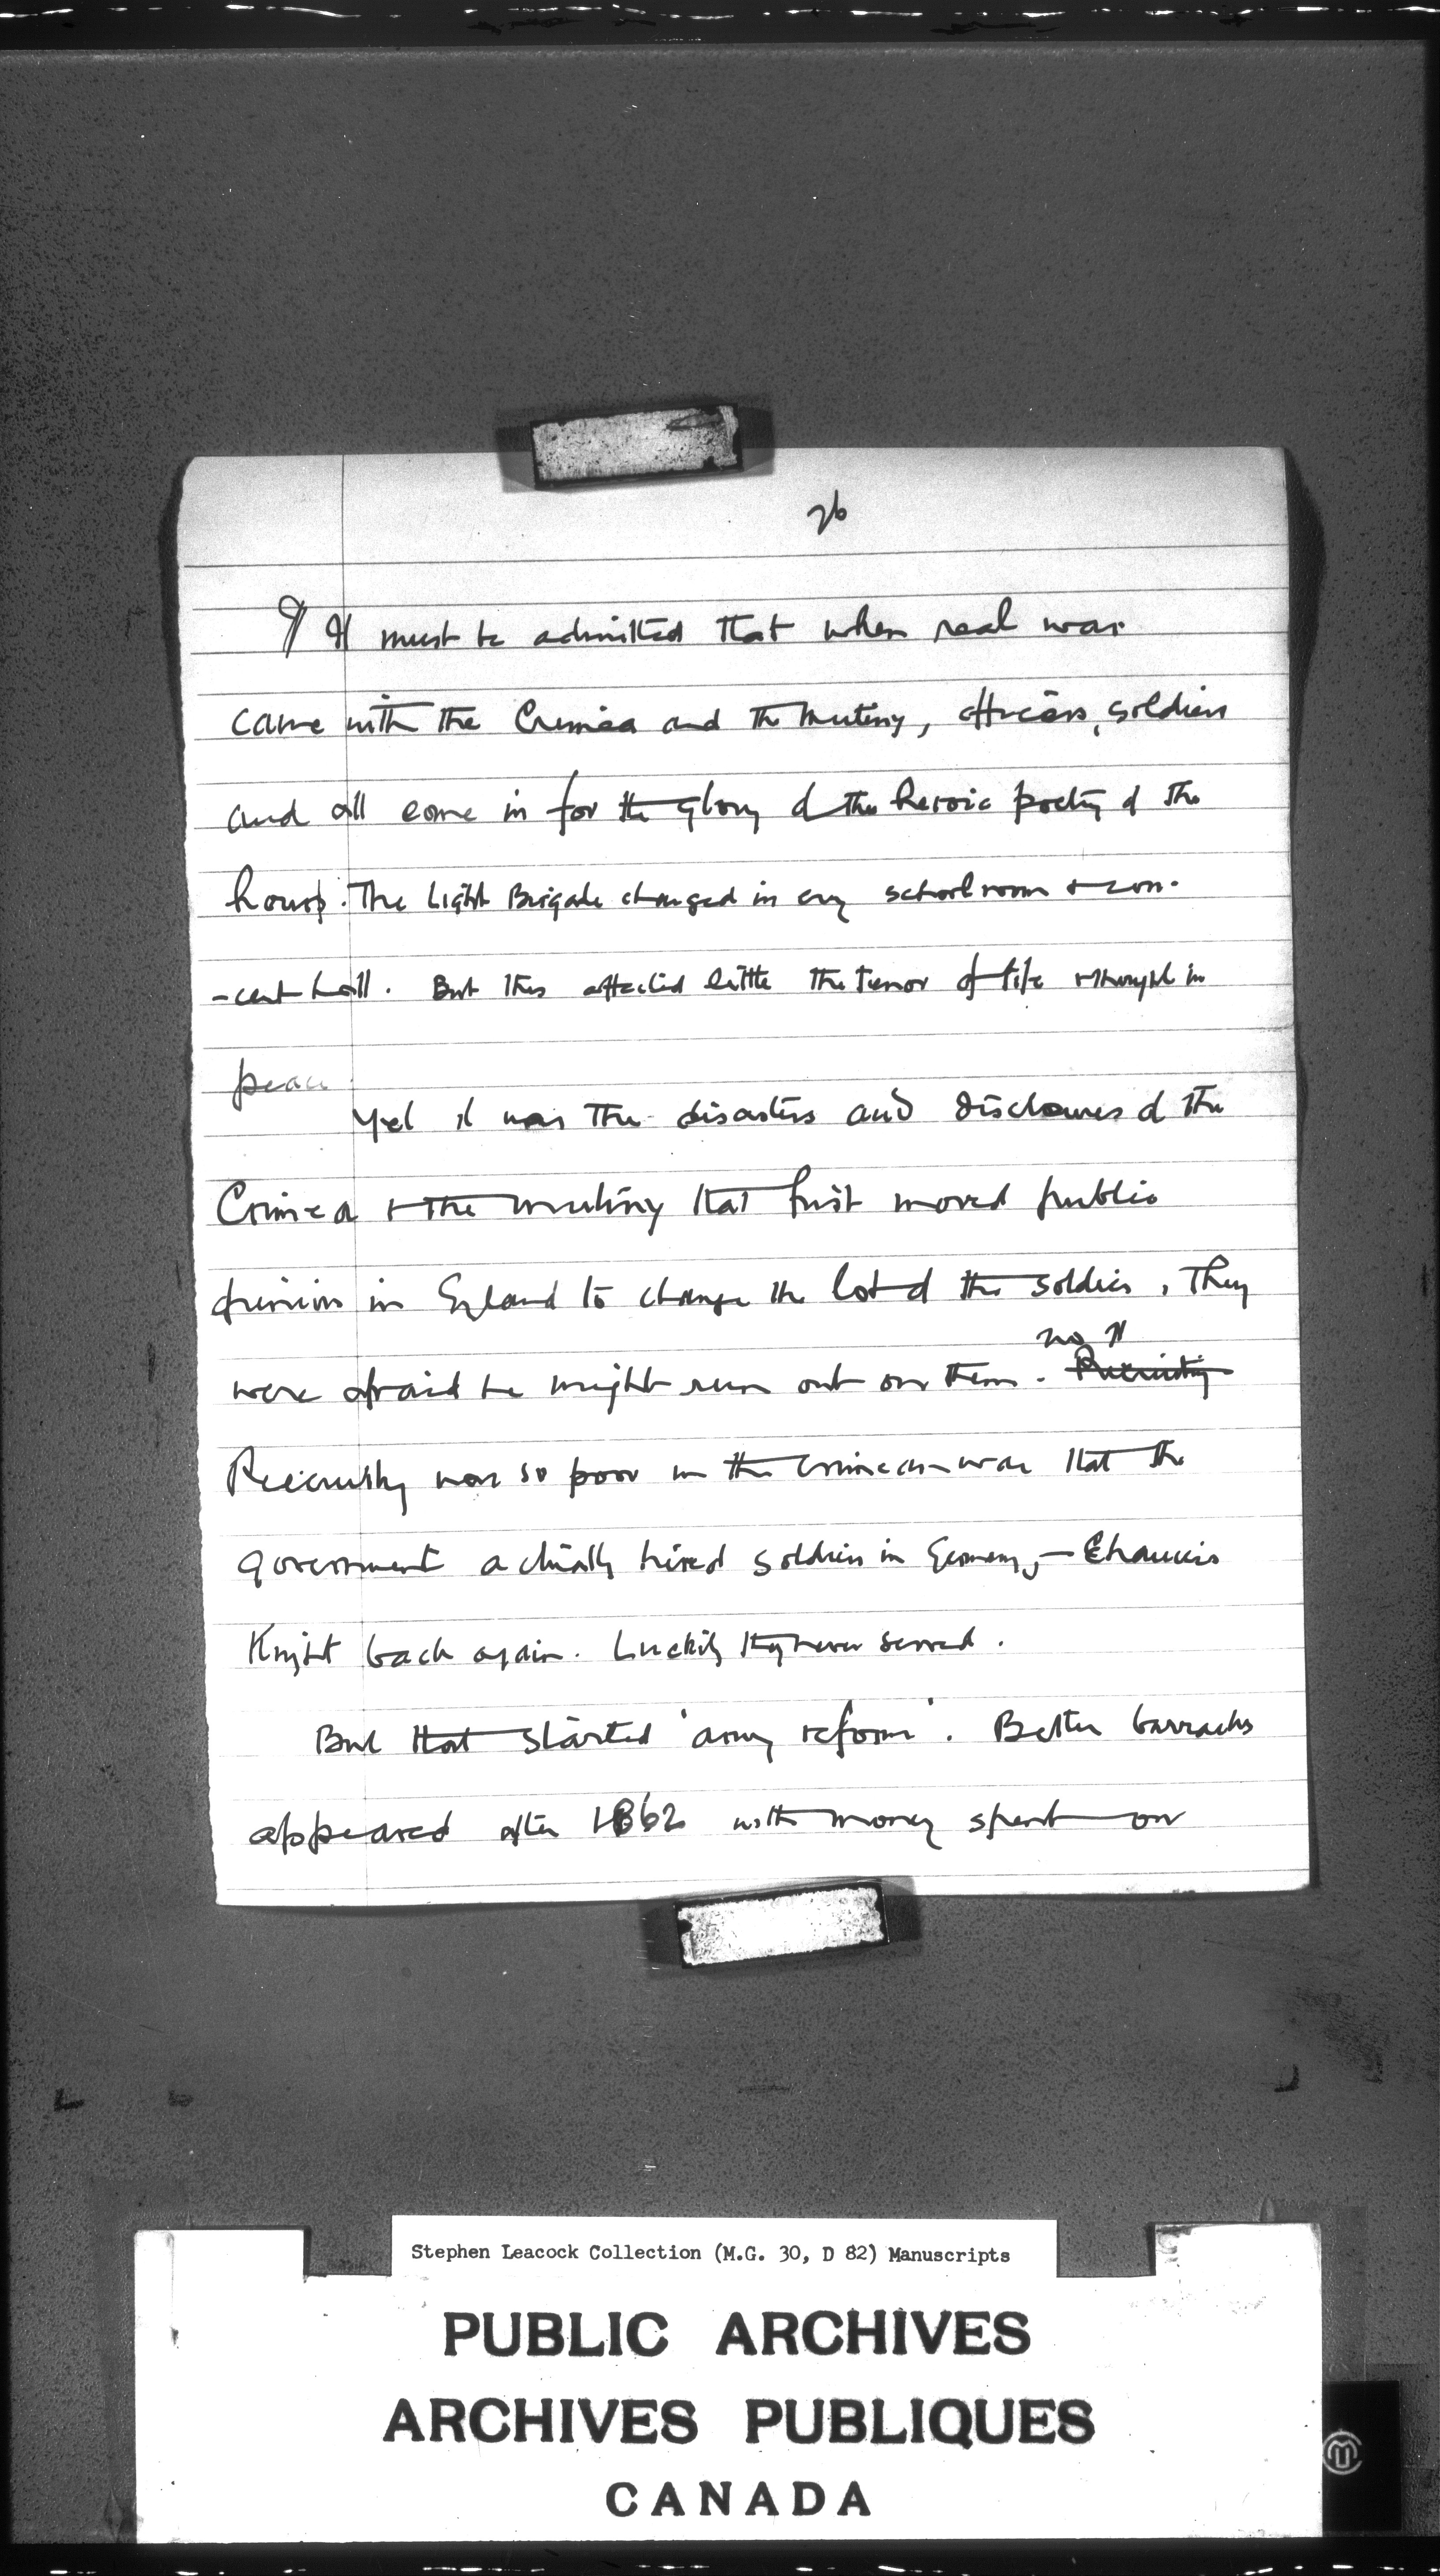 26
¶ It must be admitted that when real war
came with the Crimea and the Mutiny, officers, soldiers
and all come in for the glory of the heroic poetry of the
hour. The Light Brigade charged in every schoolroom & con-
-cert hall. But this affected little the tenor of life & thought in
peace
Yet it was the disasters and disclosures of the
Crimea & the mutiny that first moved public
opinion in England to change the lot of the soldier. They
were afraid he might run out on them. Recruiting
no ¶
Recruiting was so poor in the Crimean war that the
government actually hired soldiers in Germany, –
Knight back again. Luckily they never served.
But that started 'army reform'. Better barracks
appeared after 1862 with money spent on
Stephen Leacock Collection (M.G. 30, D 82) Manuscripts
PUBLIC ARCHIVES
ARCHIVES PUBLIQUES
CANADA